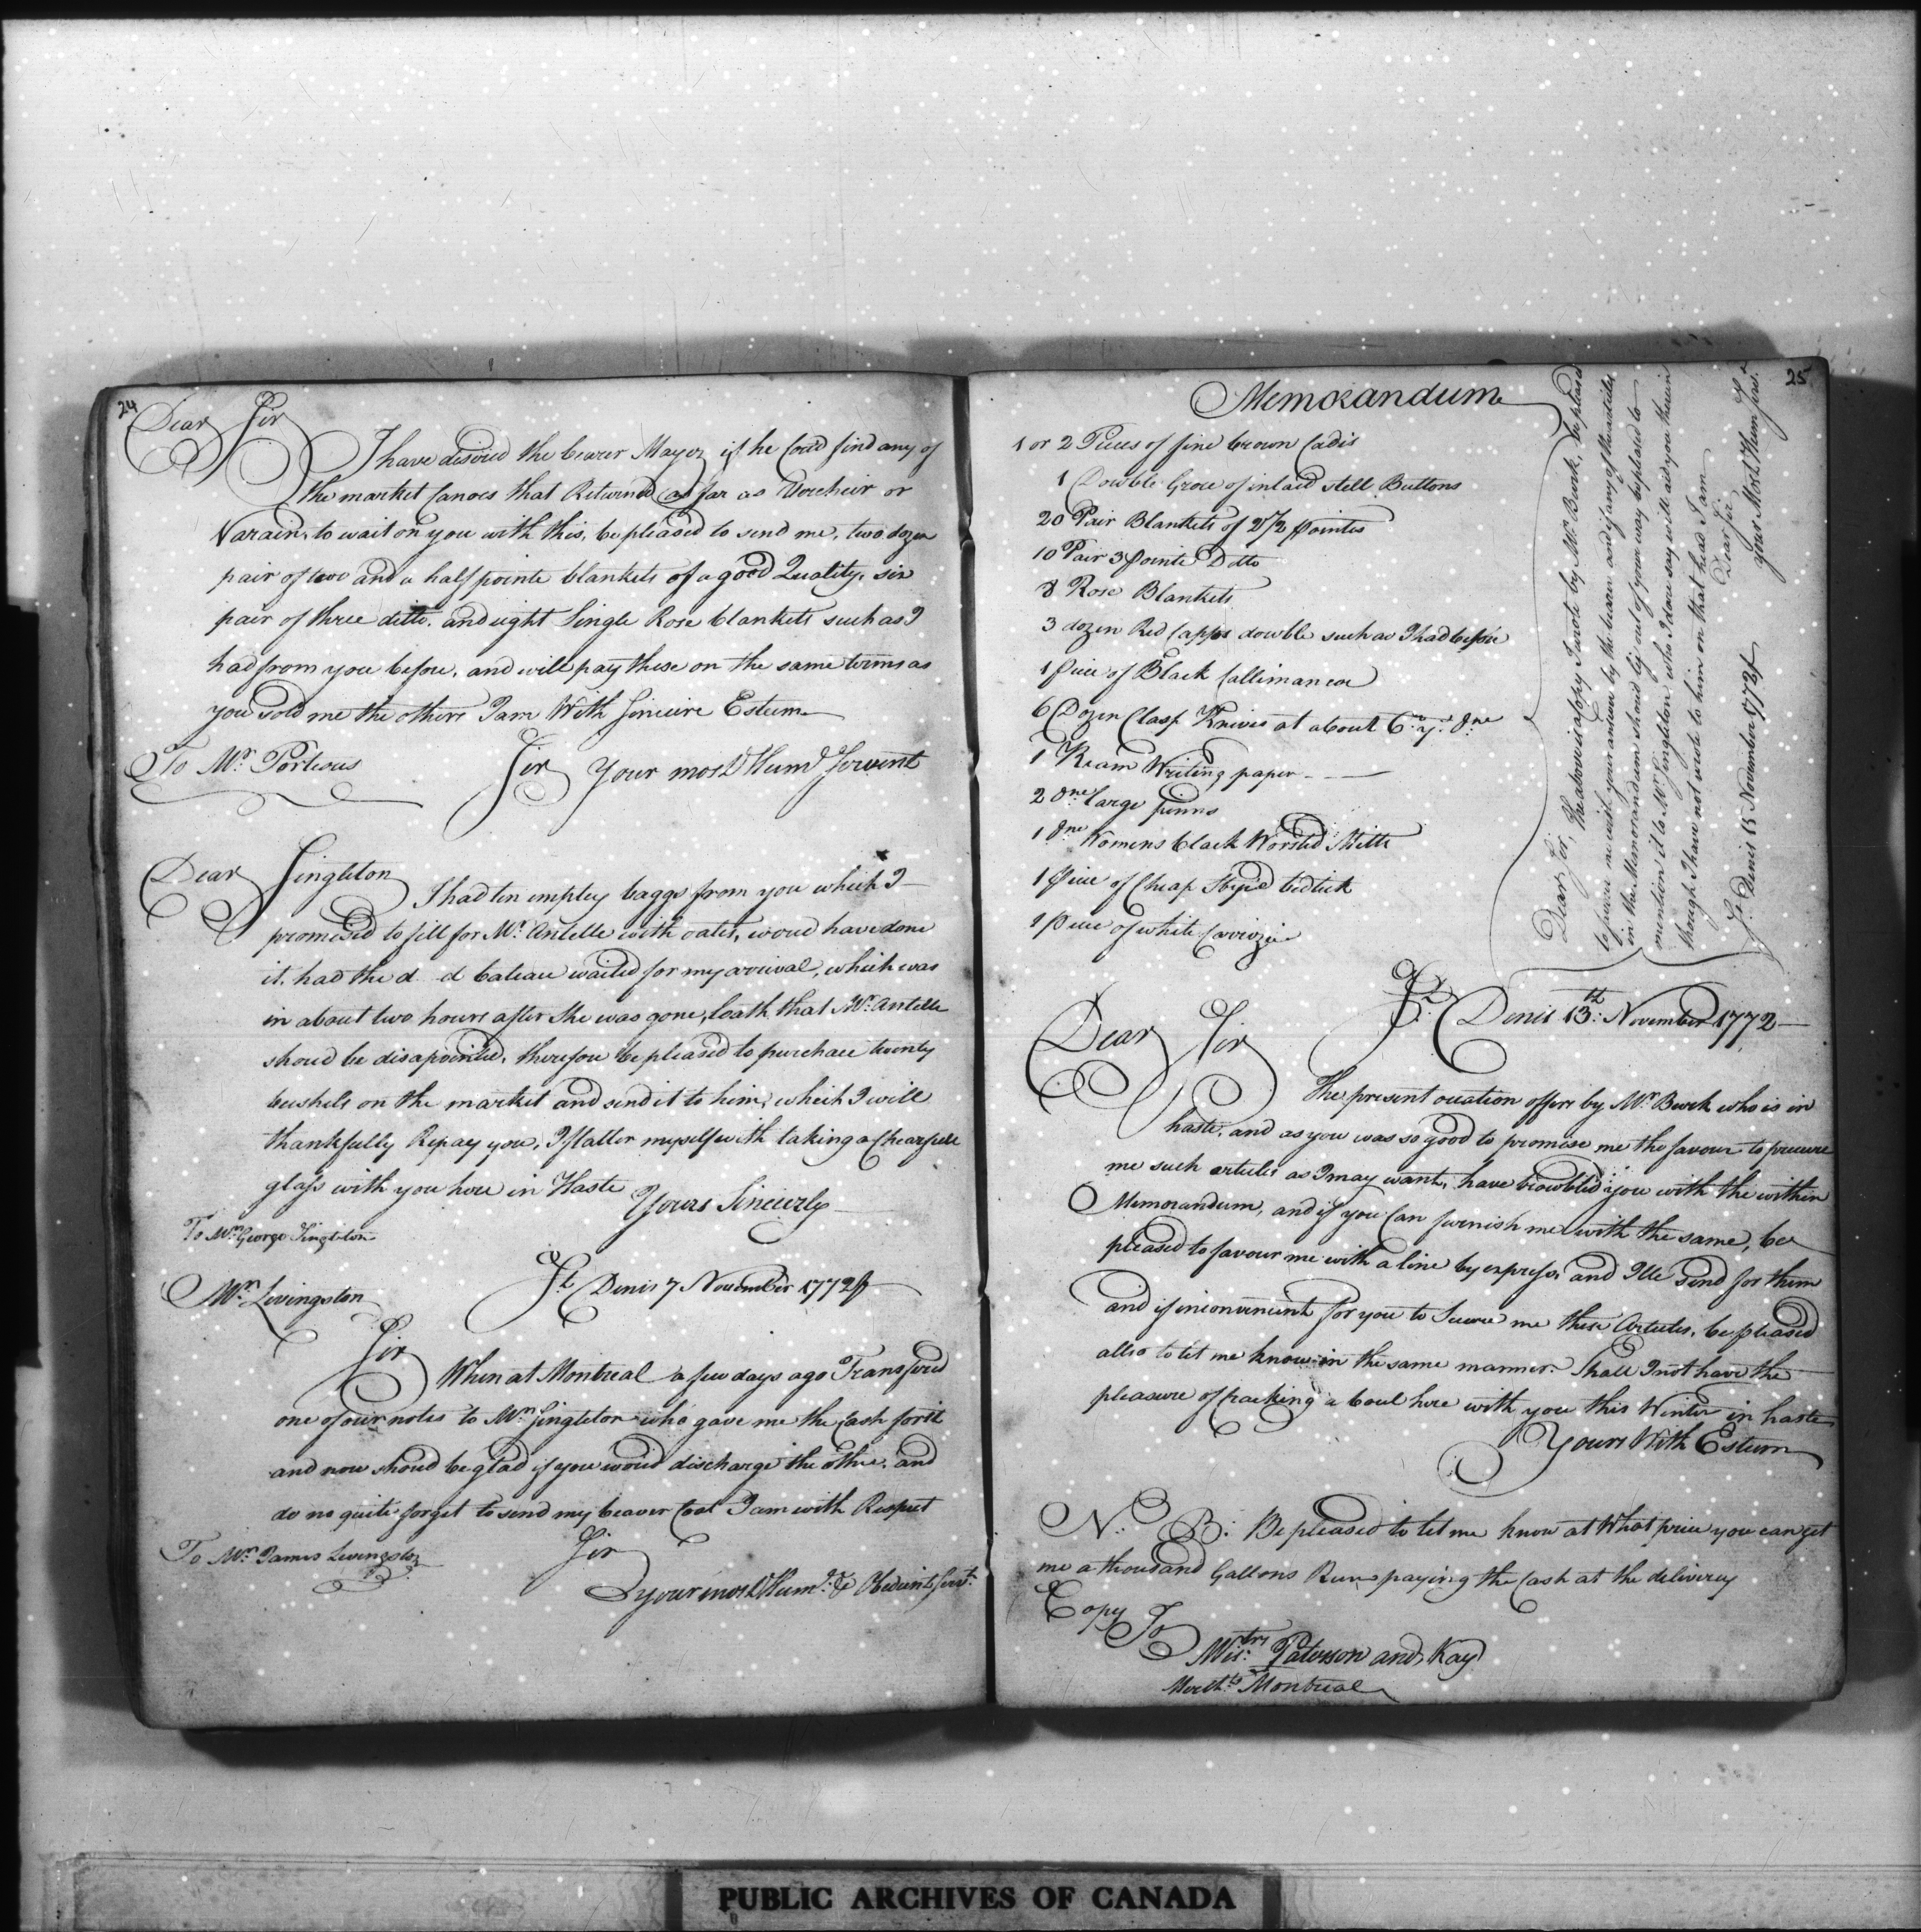 24
Dear Sir
I have desired the bearer Mayer if he Cou'd find any of
the market Canoes that Returned as far as Vercheir or
Varain, to wait on you with this, be pleased to send me, two dozen
pair of two and a half pointe blankets of a good Quality, six
pair of three ditto, and eight Single Rose blankets such as I
had from you before, and will pay these on the same terms as
you sold me the others I am With Sincire Esteem
To Mr. Porteous
Sir Your most Humd Servent
Dear Singleton
I had ten emptey baggs from you which I
promised to fill for Mr. Antille with oates, woud have done
it, had the d d bateau waited for my arrival, which was
in about two hours after she was gone, loath that Mr. Antille
shoud be disapointed, therefore be pleased to purchase twenty
bushels on the market and send it to him, which I will
thankfully Repay you, I flatter myself with taking a Chearfull
glass with you here in Haste
Yours Sincerely
To Mr. George Singleton
Mr. Livingston
St Denis 7 November 1772
Sir
When at Montreal a few days ago Transfered
one of our notes to Mr. Singleton who gave me the Cash for it
and now shoud be glad if you woud discharge the other, and
do no quite forget to send my beaver Coat I am with Respect
Sir
To Mr. James Livingston
your most Humd. & Obedient Servt.
25
Memorandum
1 or 2 Pieces of fine brown Cadis
1 Dowble Groce of inlaid stell Buttons
20 Pair Blankets of 2 1/2 pointes
10 Pair 3 pointe Ditto
8 Rose Blankets
3 dozen Red Capps dowble such as I had before
1 Piece of Black Callimancoe
6 Dozen Clasp Knives at about 6
1 Ream Writing paper
2 dne large pinns
1 dne Womens black Worsted Mitts
1 Piece of Cheap Stripd bedtick
1 Piece of white
Dear Sir, The above is a Copy I wrote by Mr. Burk, be pleased
to favour me with your answer by the bearer and if any of the articles
in the Memorandum shoud be out of your way be pleased to
mention it to Mr. Singleton who I dare say will aid you therein
though I have not wrote to him on that head I am
Dear Sir
your Most Hum Serv.
St. Denis 15 November 1772
St. Denis 13th: November 1772
Dear Sir
The present occation offers by Mr. Burk who is in
haste, and as you was so good to promise me the favour to procure
me such articles as I may want, have trowbled you with the within
Memorandum, and if you Can furnish me with the same, be
pleased to favour me with a line by express, and Ile Send for them
and if inconvenient for you to Secure me these Articles, be pleased
allso to let me know in the same manner. Shall I not have the
pleasure of cracking a boul here with you this Winter in haste
Yours With Esteem
N. B: Be pleased to let me know at What price you can get
me a thousand Gallons Rum paying the Cash at the delivery
Copy To
Paterson and Kay
Mercht: Montreal
PUBLIC ARCHIVES OF CANADA